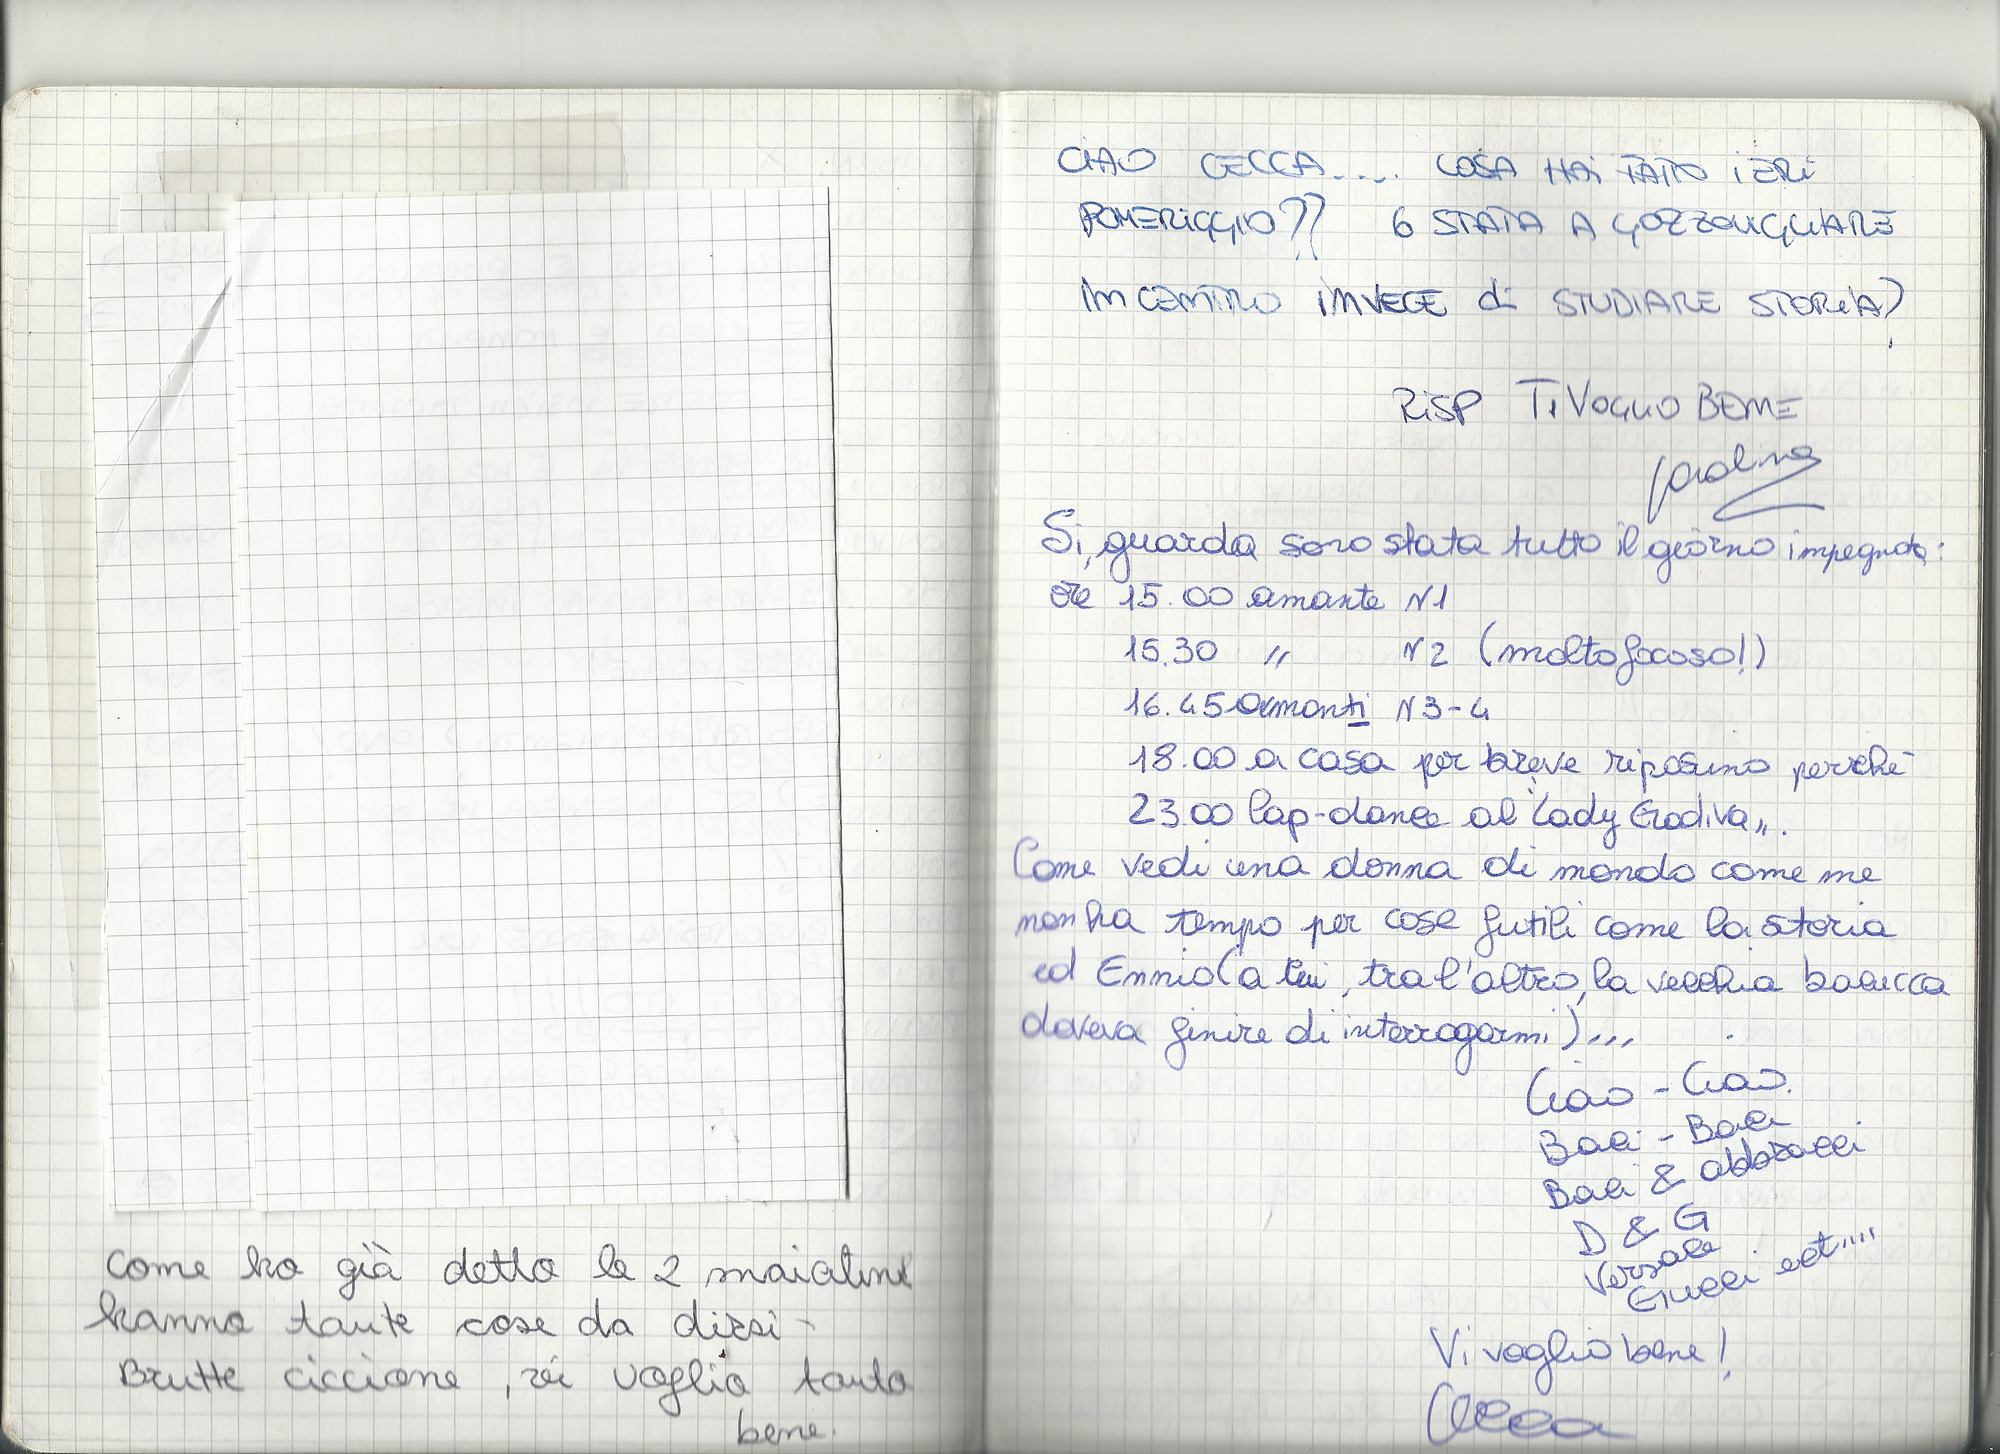 come ho già detto le 2 maialine
hanno tante cose da dirsi -
Brutte ciccione, vi voglio tanto
bene.
CIAO CECCA..... COSA HAI FATTO IERI
POMERIGGIO?? 6 STATA A GOZZOVIGLIARE
IN CENTRO INVECE di STUDIARE STORIA?
RISP TI VOGLIO BENE
Si, guarda sono stata tutto il giorno impegnata:
ore 15.00 amante N1
15.30 " N2 (molto focoso!)
16.45 amanti N3-4
18.00 a casa per breve riposino perché
23.00 lap-dance al "Lady Godiva".
Come vedi una donna di mondo come me
non ha tempo per cose futili come la storia
ed Ennio (a lui, tra l'altro, la vecchia bacucca
doveva finire di interrogarmi)...
Ciao - Ciao.
Baci - Baci
Baci & abbracci
D & G
Versace
Gucci ect....
Vi voglio bene!
Cecca